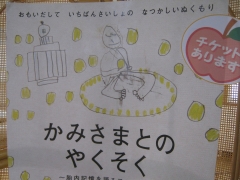 おもいだして　いちばんさいしょの　なつかしいぬくもり
チケット
あります
かみさまとの
やくそく